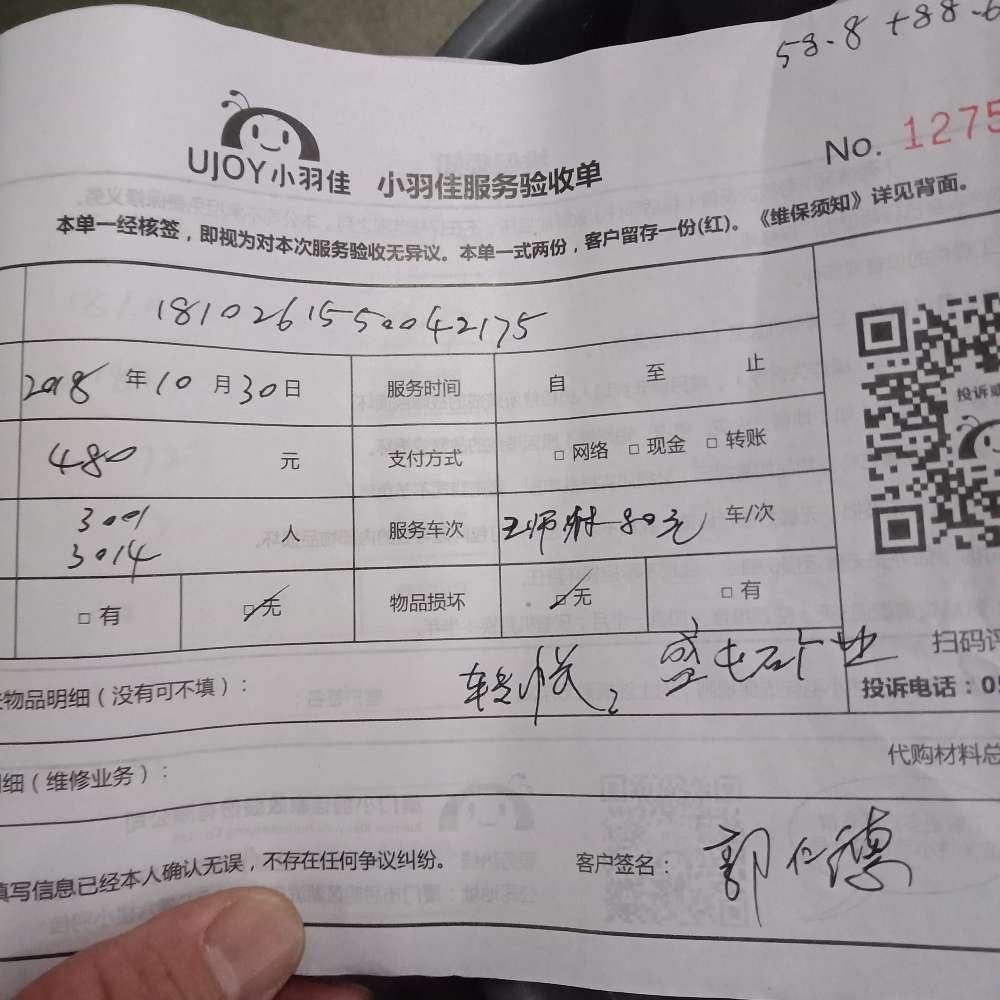 58.8+88.6
UJOY小羽佳 小羽佳服务验收单
No. 1275
本单一经核签，即视为对本次服务验收无异议。本单一式两份，客户留存一份(红)。《维保须知》详见背面。
1810261550042175
2018 年 10 月 30 日 服务时间 自 至 止
480 元 支付方式 □ 网络 □ 现金 □ 转账
3001
3014 人 服务车次 王师傅 80元 车/次
□ 有 □ 无 物品损坏 □ 无 □ 有
投诉
扫码评
投诉电话：05
物品明细（没有可不填）：
代购材料总
细（维修业务）：
填写信息已经本人确认无误，不存在任何争议纠纷。 客户签名： 郭仁德